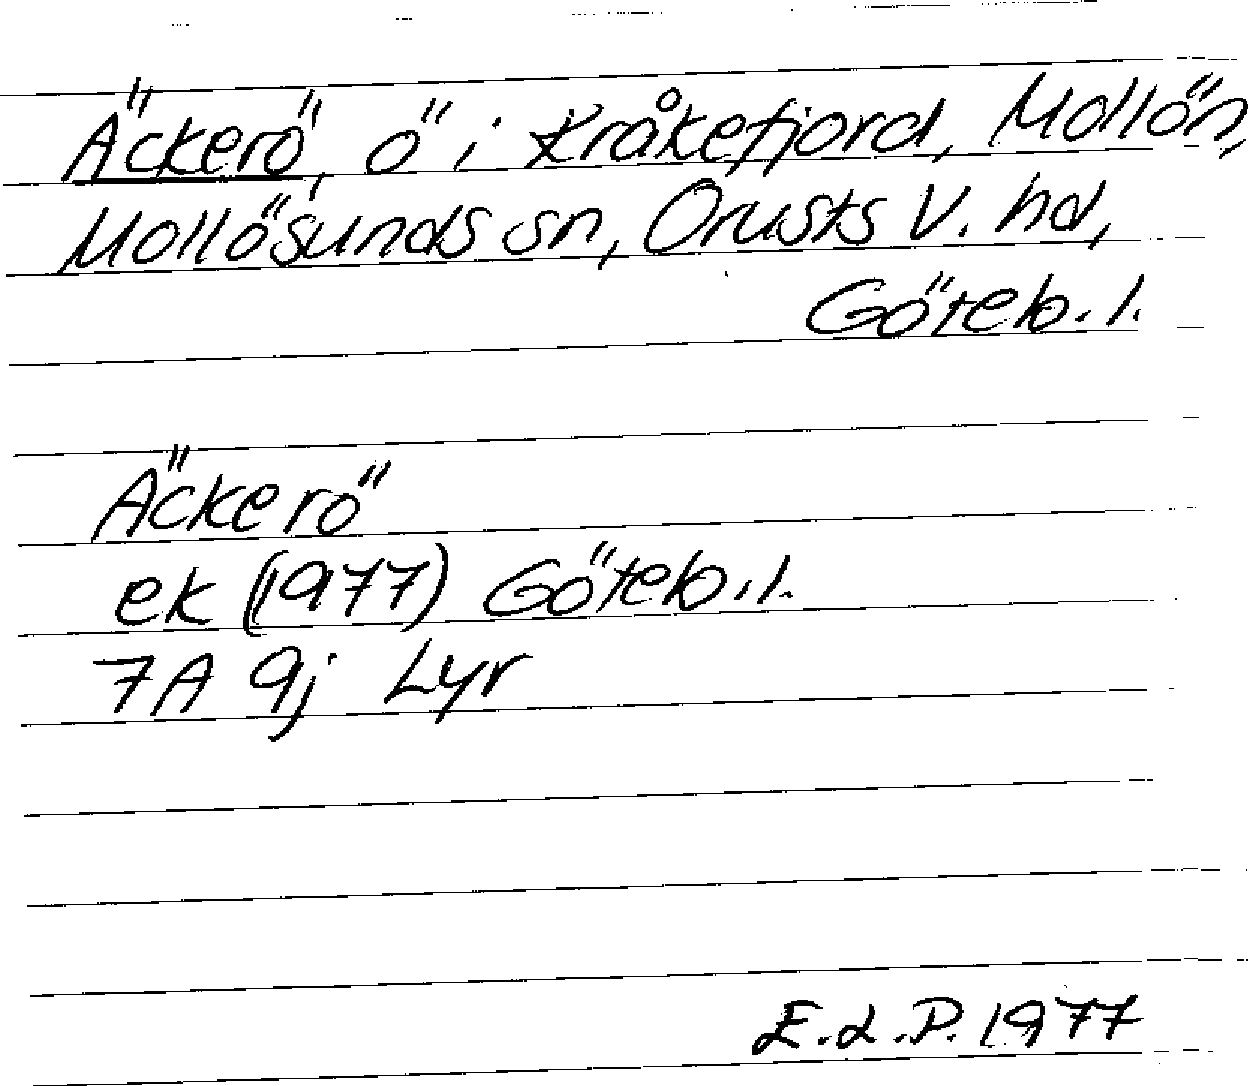 Äckerö, ö i Kråkefjord, Mollön,
Mollösunds sn, Orusts V. hd,
Göteb. l.
Äckerö
ek (1977) Göteb. l.
7A 9j Lyr
E.L.P. 1977